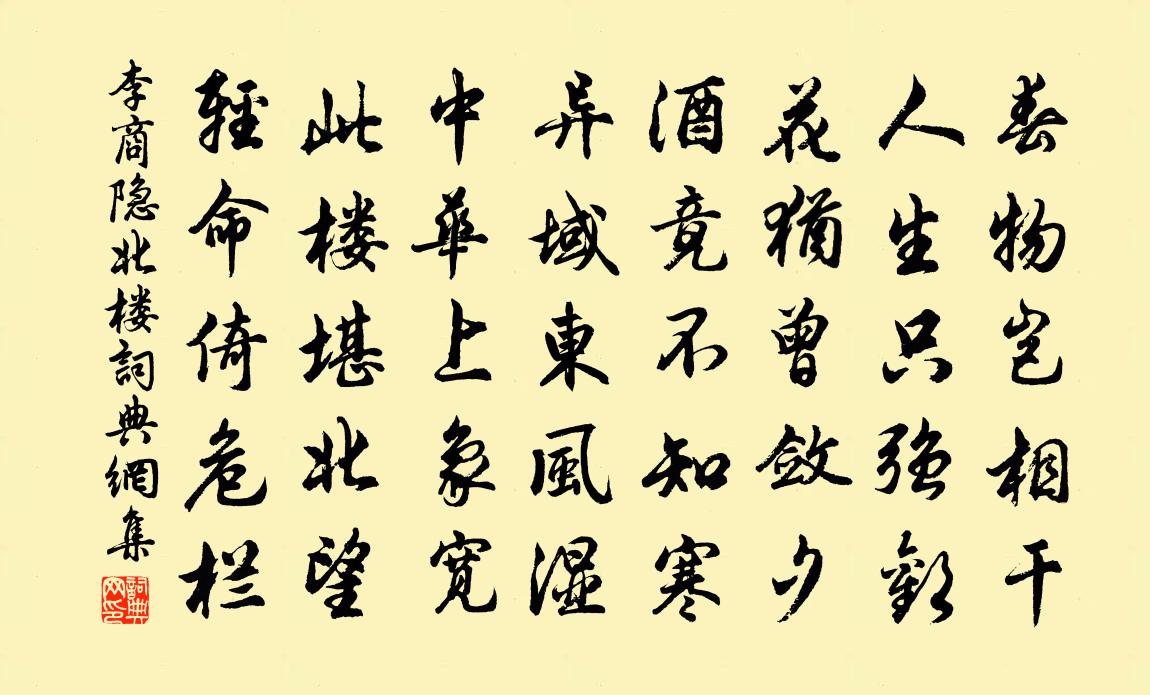 春物岂相干
人生只強歡
花猶曾斂夕
酒竟不知寒
异域東風湿
中華上象寬
此楼堪北望
輕命倚危栏
李商隐北楼詞典網集
詞典网印